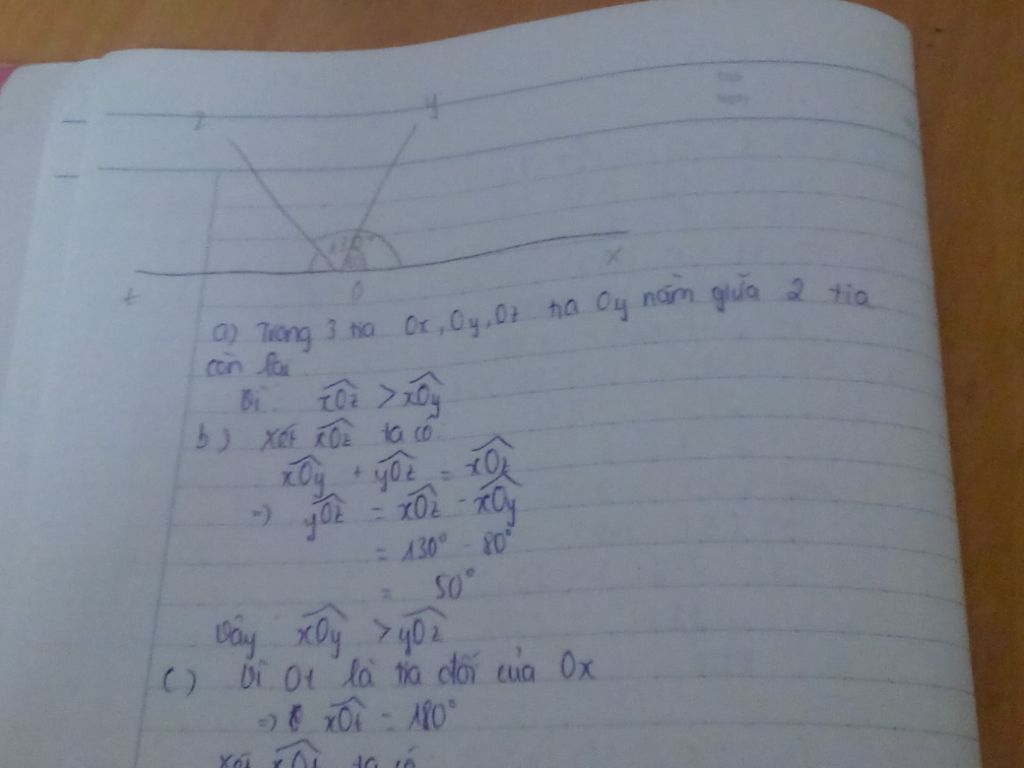 z y
130°
t O x
a) Trong 3 tia Ox, Oy, Oz tia Oy nằm giữa 2 tia
còn lại
Vì: xOz > xOy
b) xét xOz ta có:
xOy + yOz = xOz
=> yOz = xOz - xOy
= 130° - 80°
= 50°
Vậy xOy > yOz
c) Vì Ot là tia đối của Ox
=> xOt = 180°
xét xOt ta có